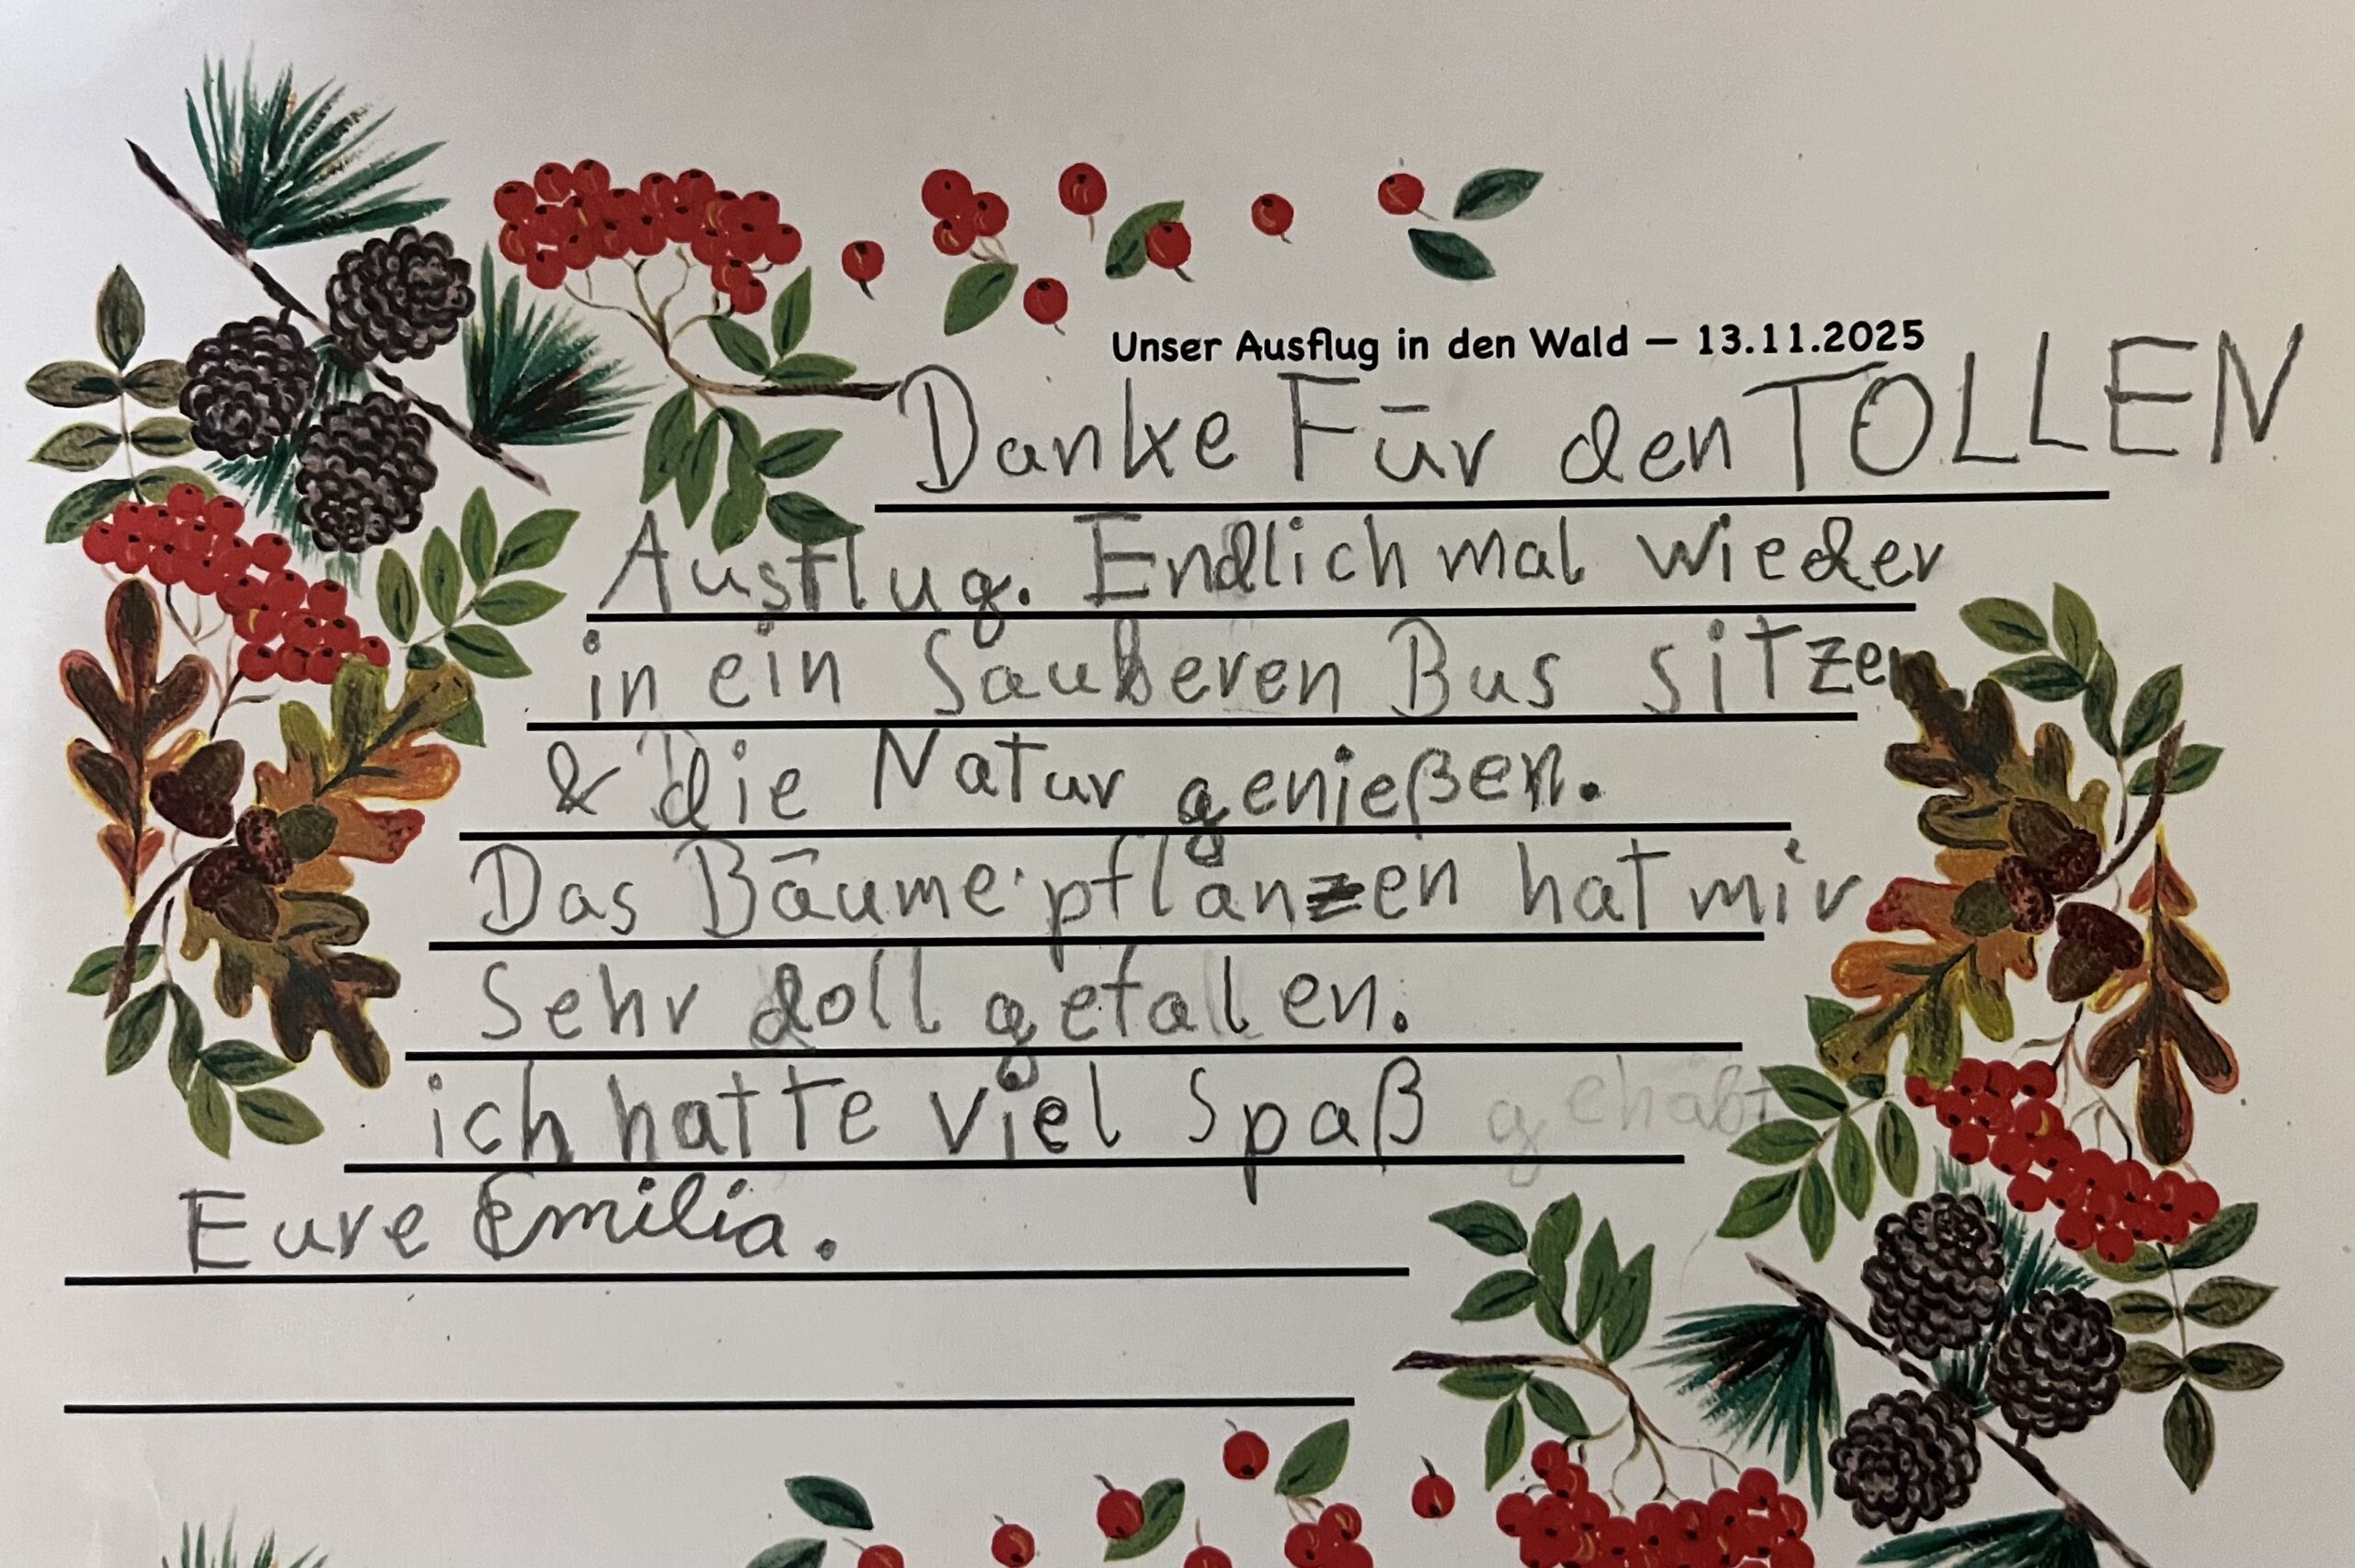 Unser Ausflug in den Wald – 13.11.2025
Danke Für den TOLLEN
Ausflug. Endlich mal wieder
in ein Sauberen Bus sitzen
& die Natur genießen.
Das Bäume pflanzen hat mir
Sehr doll gefallen.
ich hatte viel Spaß gehabt
Eure Emilia.